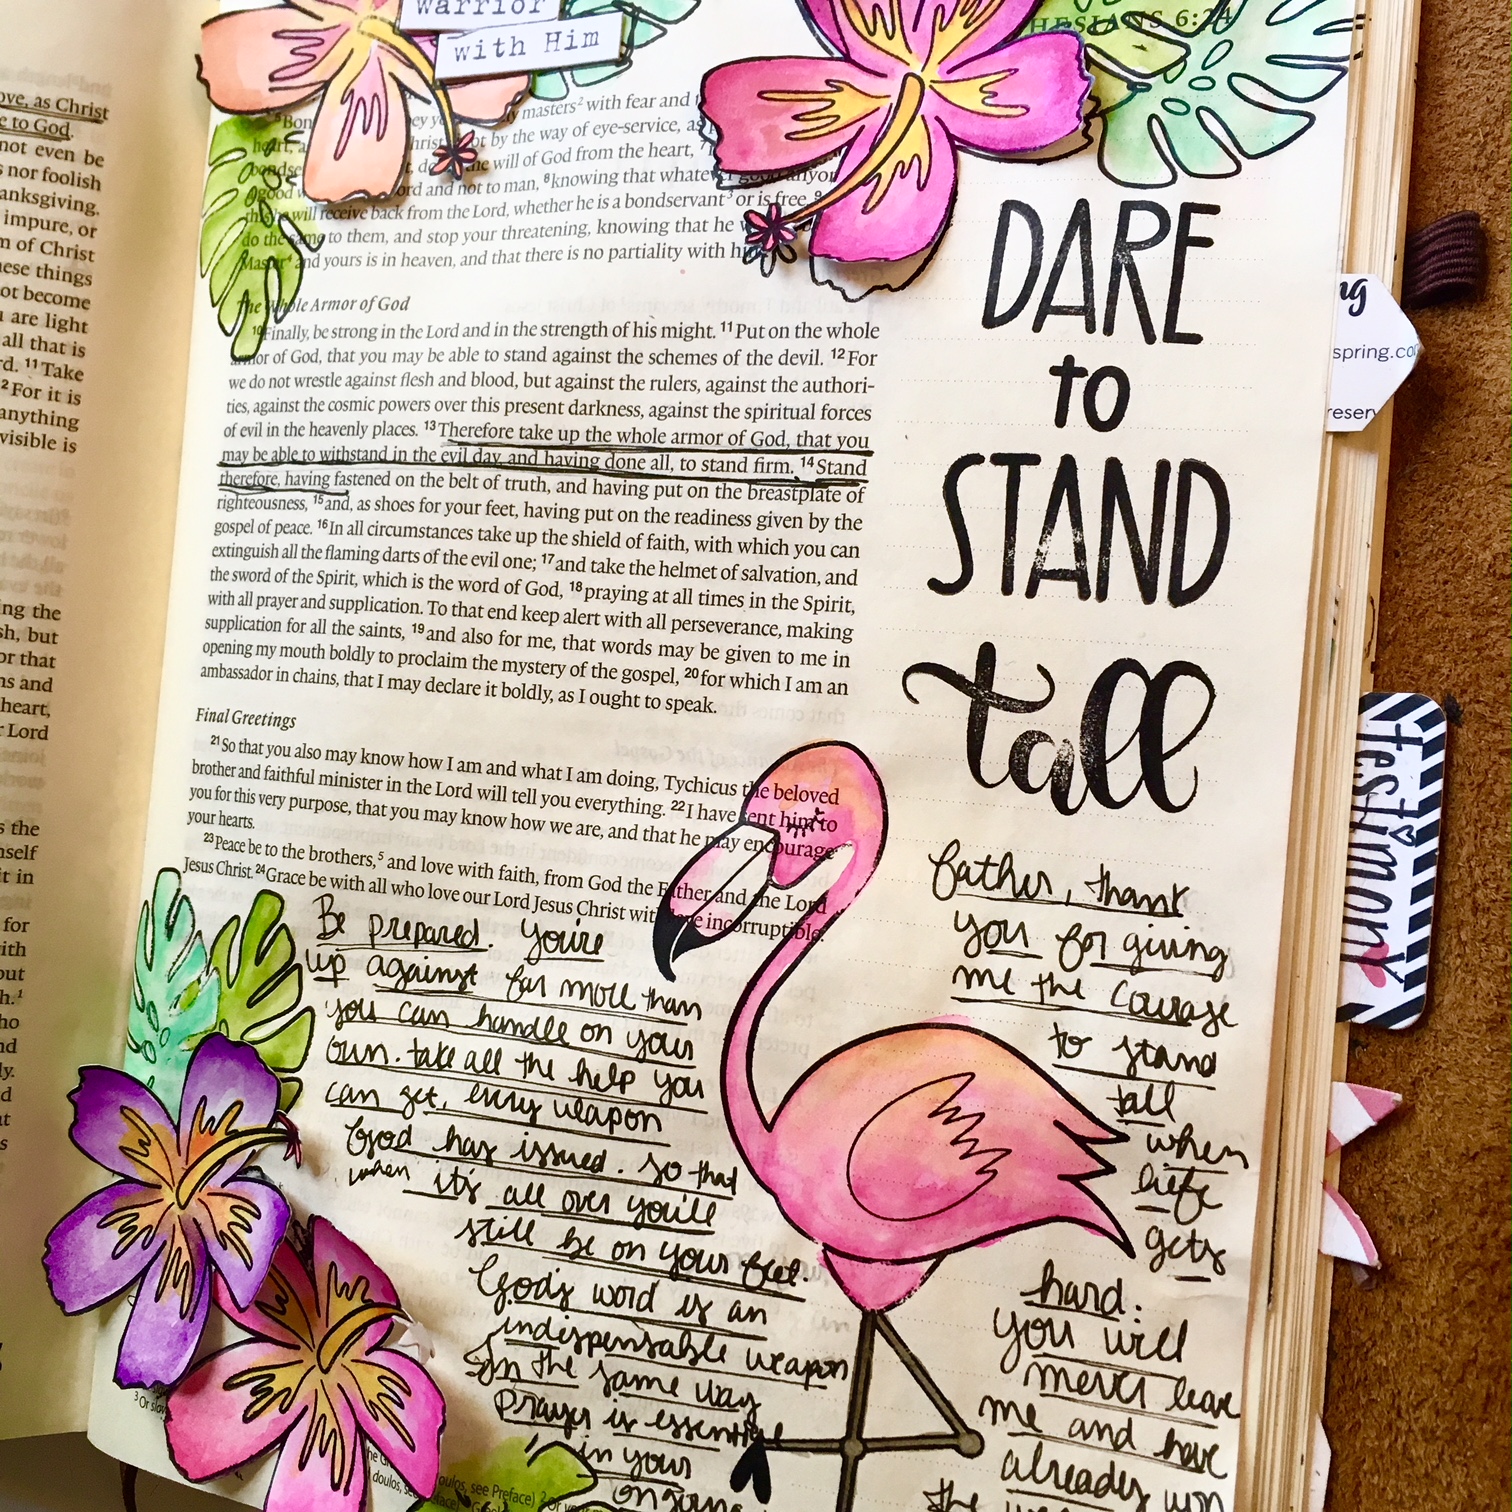 warrior
with Him
HESIANS 6:24
masters² with fear and
by the way of eye-service, as
the will of God from the heart, ⁷
ord and not to man, ⁸knowing that whatever good anyon
he will receive back from the Lord, whether he is a bondservant³ or is free. ⁹
do the same to them, and stop your threatening, knowing that he
Master⁴ and yours is in heaven, and that there is no partiality with him
The Whole Armor of God
¹⁰Finally, be strong in the Lord and in the strength of his might. ¹¹Put on the whole
armor of God, that you may be able to stand against the schemes of the devil. ¹²For
we do not wrestle against flesh and blood, but against the rulers, against the authori-
ties, against the cosmic powers over this present darkness, against the spiritual forces
of evil in the heavenly places. ¹³Therefore take up the whole armor of God, that you
may be able to withstand in the evil day, and having done all, to stand firm. ¹⁴Stand
therefore, having fastened on the belt of truth, and having put on the breastplate of
righteousness, ¹⁵and, as shoes for your feet, having put on the readiness given by the
gospel of peace. ¹⁶In all circumstances take up the shield of faith, with which you can
extinguish all the flaming darts of the evil one; ¹⁷and take the helmet of salvation, and
the sword of the Spirit, which is the word of God, ¹⁸praying at all times in the Spirit,
with all prayer and supplication. To that end keep alert with all perseverance, making
supplication for all the saints, ¹⁹and also for me, that words may be given to me in
opening my mouth boldly to proclaim the mystery of the gospel, ²⁰for which I am an
ambassador in chains, that I may declare it boldly, as I ought to speak.
Final Greetings
²¹So that you also may know how I am and what I am doing, Tychicus the beloved
brother and faithful minister in the Lord will tell you everything. ²²I have sent him to
you for this very purpose, that you may know how we are, and that he may encourage
your hearts.
²³Peace be to the brothers,⁵ and love with faith, from God the Father and the Lord
Jesus Christ. ²⁴Grace be with all who love our Lord Jesus Christ with love incorruptible.
Be prepared. You're
up against far more than
you can handle on your
own. take all the help you
can get, every weapon
God has issued. so that
when it's all over you'll
still be on your feet.
God's word is an
indispensable weapon
In the same way
prayer is essential
in your
ongoing
DARE
to
STAND
tall
Father, thank
you for giving
me the courage
to stand
tall
when
life
gets
hard.
You will
never leave
me and have
already won
the
ove, as Christ
e to God.
not even be
nor foolish
anksgiving.
impure, or
m of Christ
hese things
ot become
are light
all that is
rd. ¹¹Take
²For it is
anything
visible is
ng the
sh, but
or that
ns and
heart,
Lord
s the
mself
it in
for
ith
out
h.¹
ho
nd
ly.
d
at
s
ng
spring.co
reserv
Testimony
³Or
doulos, see Preface)